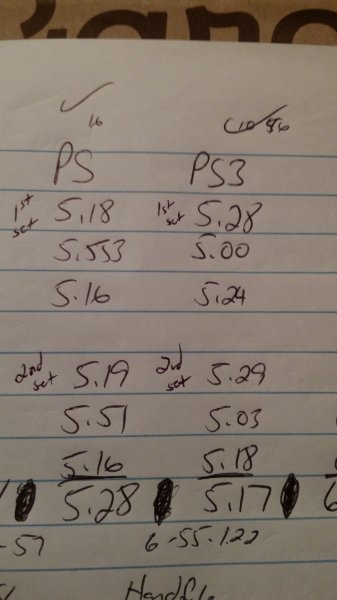 16
PS PS3
1st set 5.18 1st set 5.28
5.553 5.00
5.16 5.24
2nd set 5.19 2nd set 5.29
5.51 5.03
5.16 5.18
5.28 5.17 6
-57 6-55-1.22